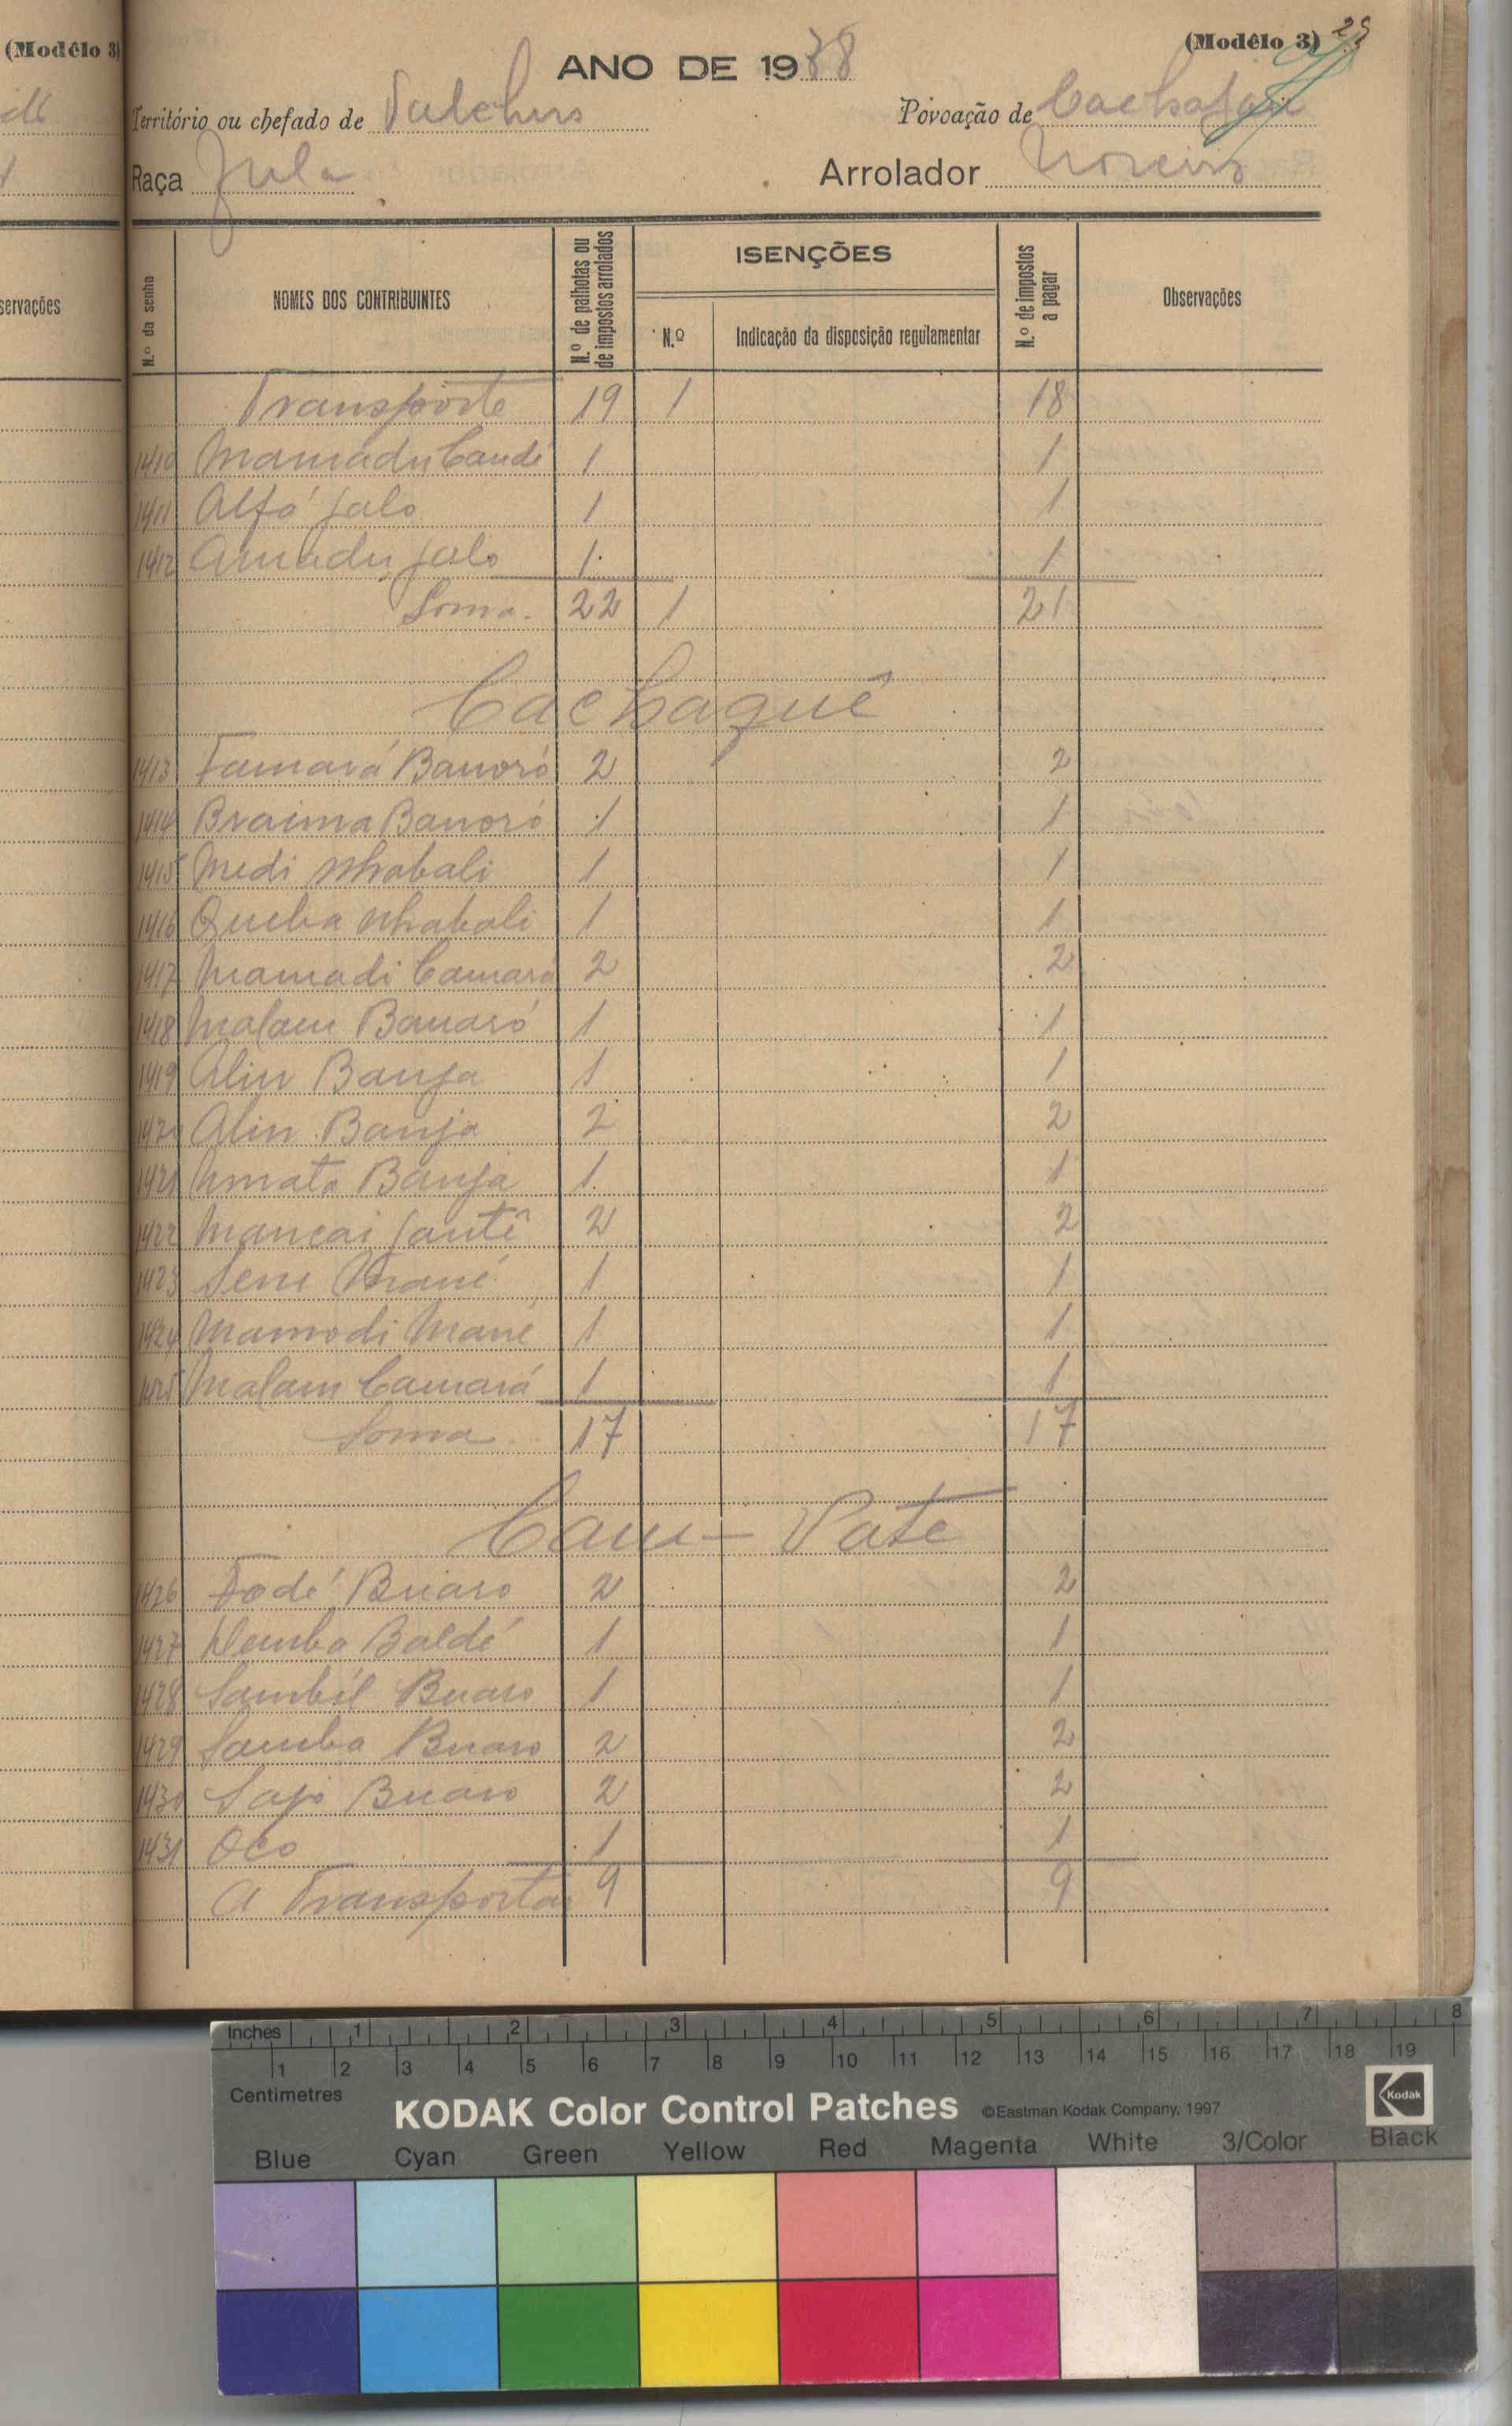 (Modêlo 3)
(Modêlo 3)
ANO DE 1938
Território ou chefado de
Povoação de
Raça Fula
Arrolador Moreira
servações
N.º da senha
NOMES DOS CONTRIBUINTES
N.º de palhotas ou de impostos arrolados
ISENÇÕES
N.º
Indicação da disposição regulamentar
N.º de impostos a pagar
Observações
Transporte 19 1 18
1410 Mamadu Candé 1 1
1411 Alfá Jaló 1 1
1412 Amadu Jaló 1 1
Soma 22 1 21
Cachaquê
1413 Famará Banoró 2 2
1414 Braima Banoró 1 1
1415 Medi Nhabali 1 1
1416 Queba Nhabali 1 1
1417 Mamadi Camará 2 2
1418 Malam Banoró 1 1
1419 Aliu Banja 1 1
1420 Aliu Banja 2 2
1421 Banja 1 1
1422 Mancai Jantê 2 2
1423 Mané 1 1
1424 Mamodi Mané 1 1
1425 Malam Camará 1 1
Soma 17 17
Cam - Pate
1426 Fodé Buaro 2 2
1427 Demba Baldé 1 1
1428 Sambél Buaro 1 1
1429 Samba Buaro 2 2
1430 Sajo Buaro 2 2
1431 Oco 1 1
A Transportar 9 9
Inches 1 2 3 4 5 6 7 8
1 2 3 4 5 6 7 8 9 10 11 12 13 14 15 16 17 18 19
Centimetres
KODAK Color Control Patches ©Eastman Kodak Company, 1997
Kodak
Blue Cyan Green Yellow Red Magenta White 3/Color Black